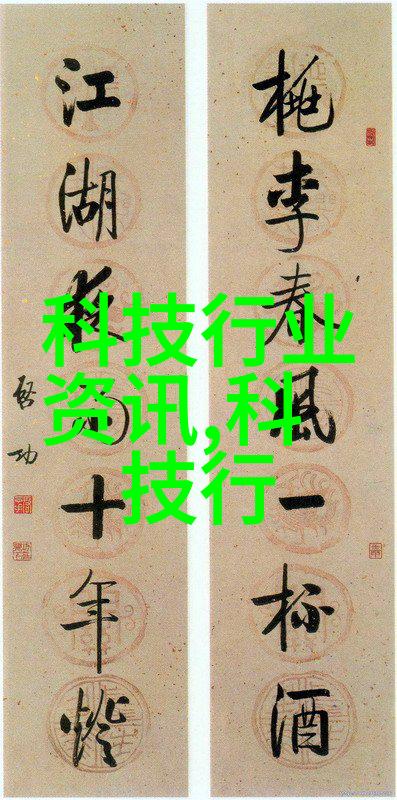 桃李春風一杯酒
江湖夜雨十年燈
啓功
科技行业
资讯,科
技行